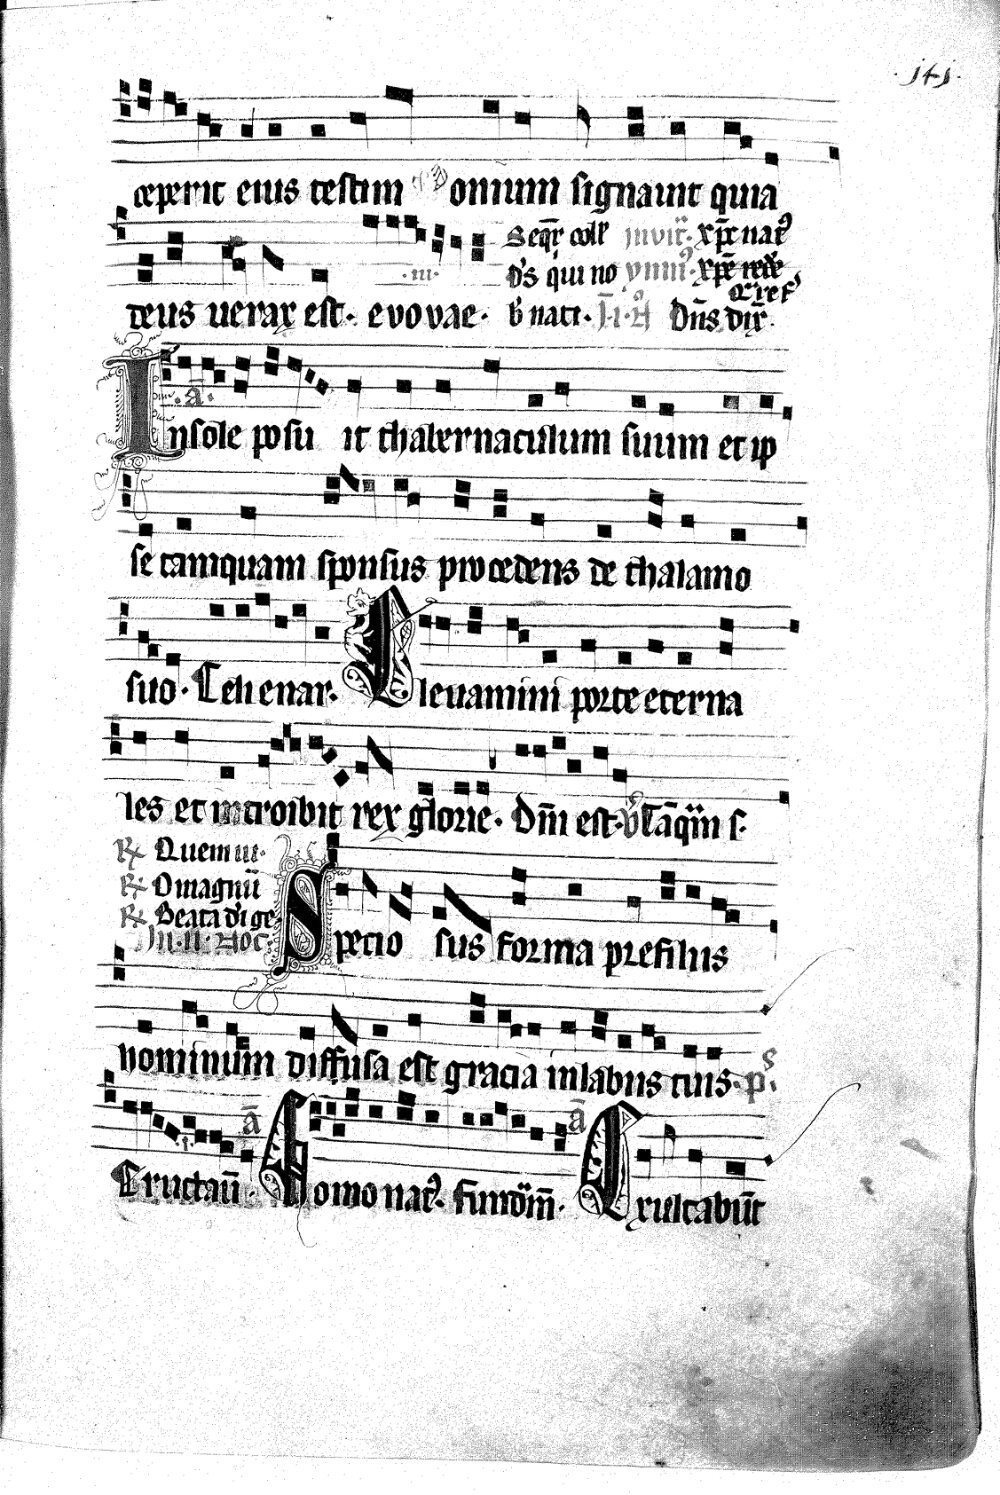 ·141·
ceperit eius testim onium signauit quia
Seqr̄ coll' inuit̄. xp̄c nat9
d's qui no ymn9. xp̄e rede
deus uerax est. evovae. b' nati. Dn̄s dix̄.
Insole posu it thabernaculum suum et ip
se tamquam sponsus procedens de thalamo
suo. Celi enar. Eleuamini porte eterna
les et introibit rex glorie. Dm̄ est.
℟ Quem iii.
℟ O magnū
℟ Beata di ge.
In. ii. noc̄.
Specio sus forma prefiluis
vominum diffusa est gracia inlabiis tuis. ps.
Eructau̅. Homo nat9. Fundm̄. Exultabūt